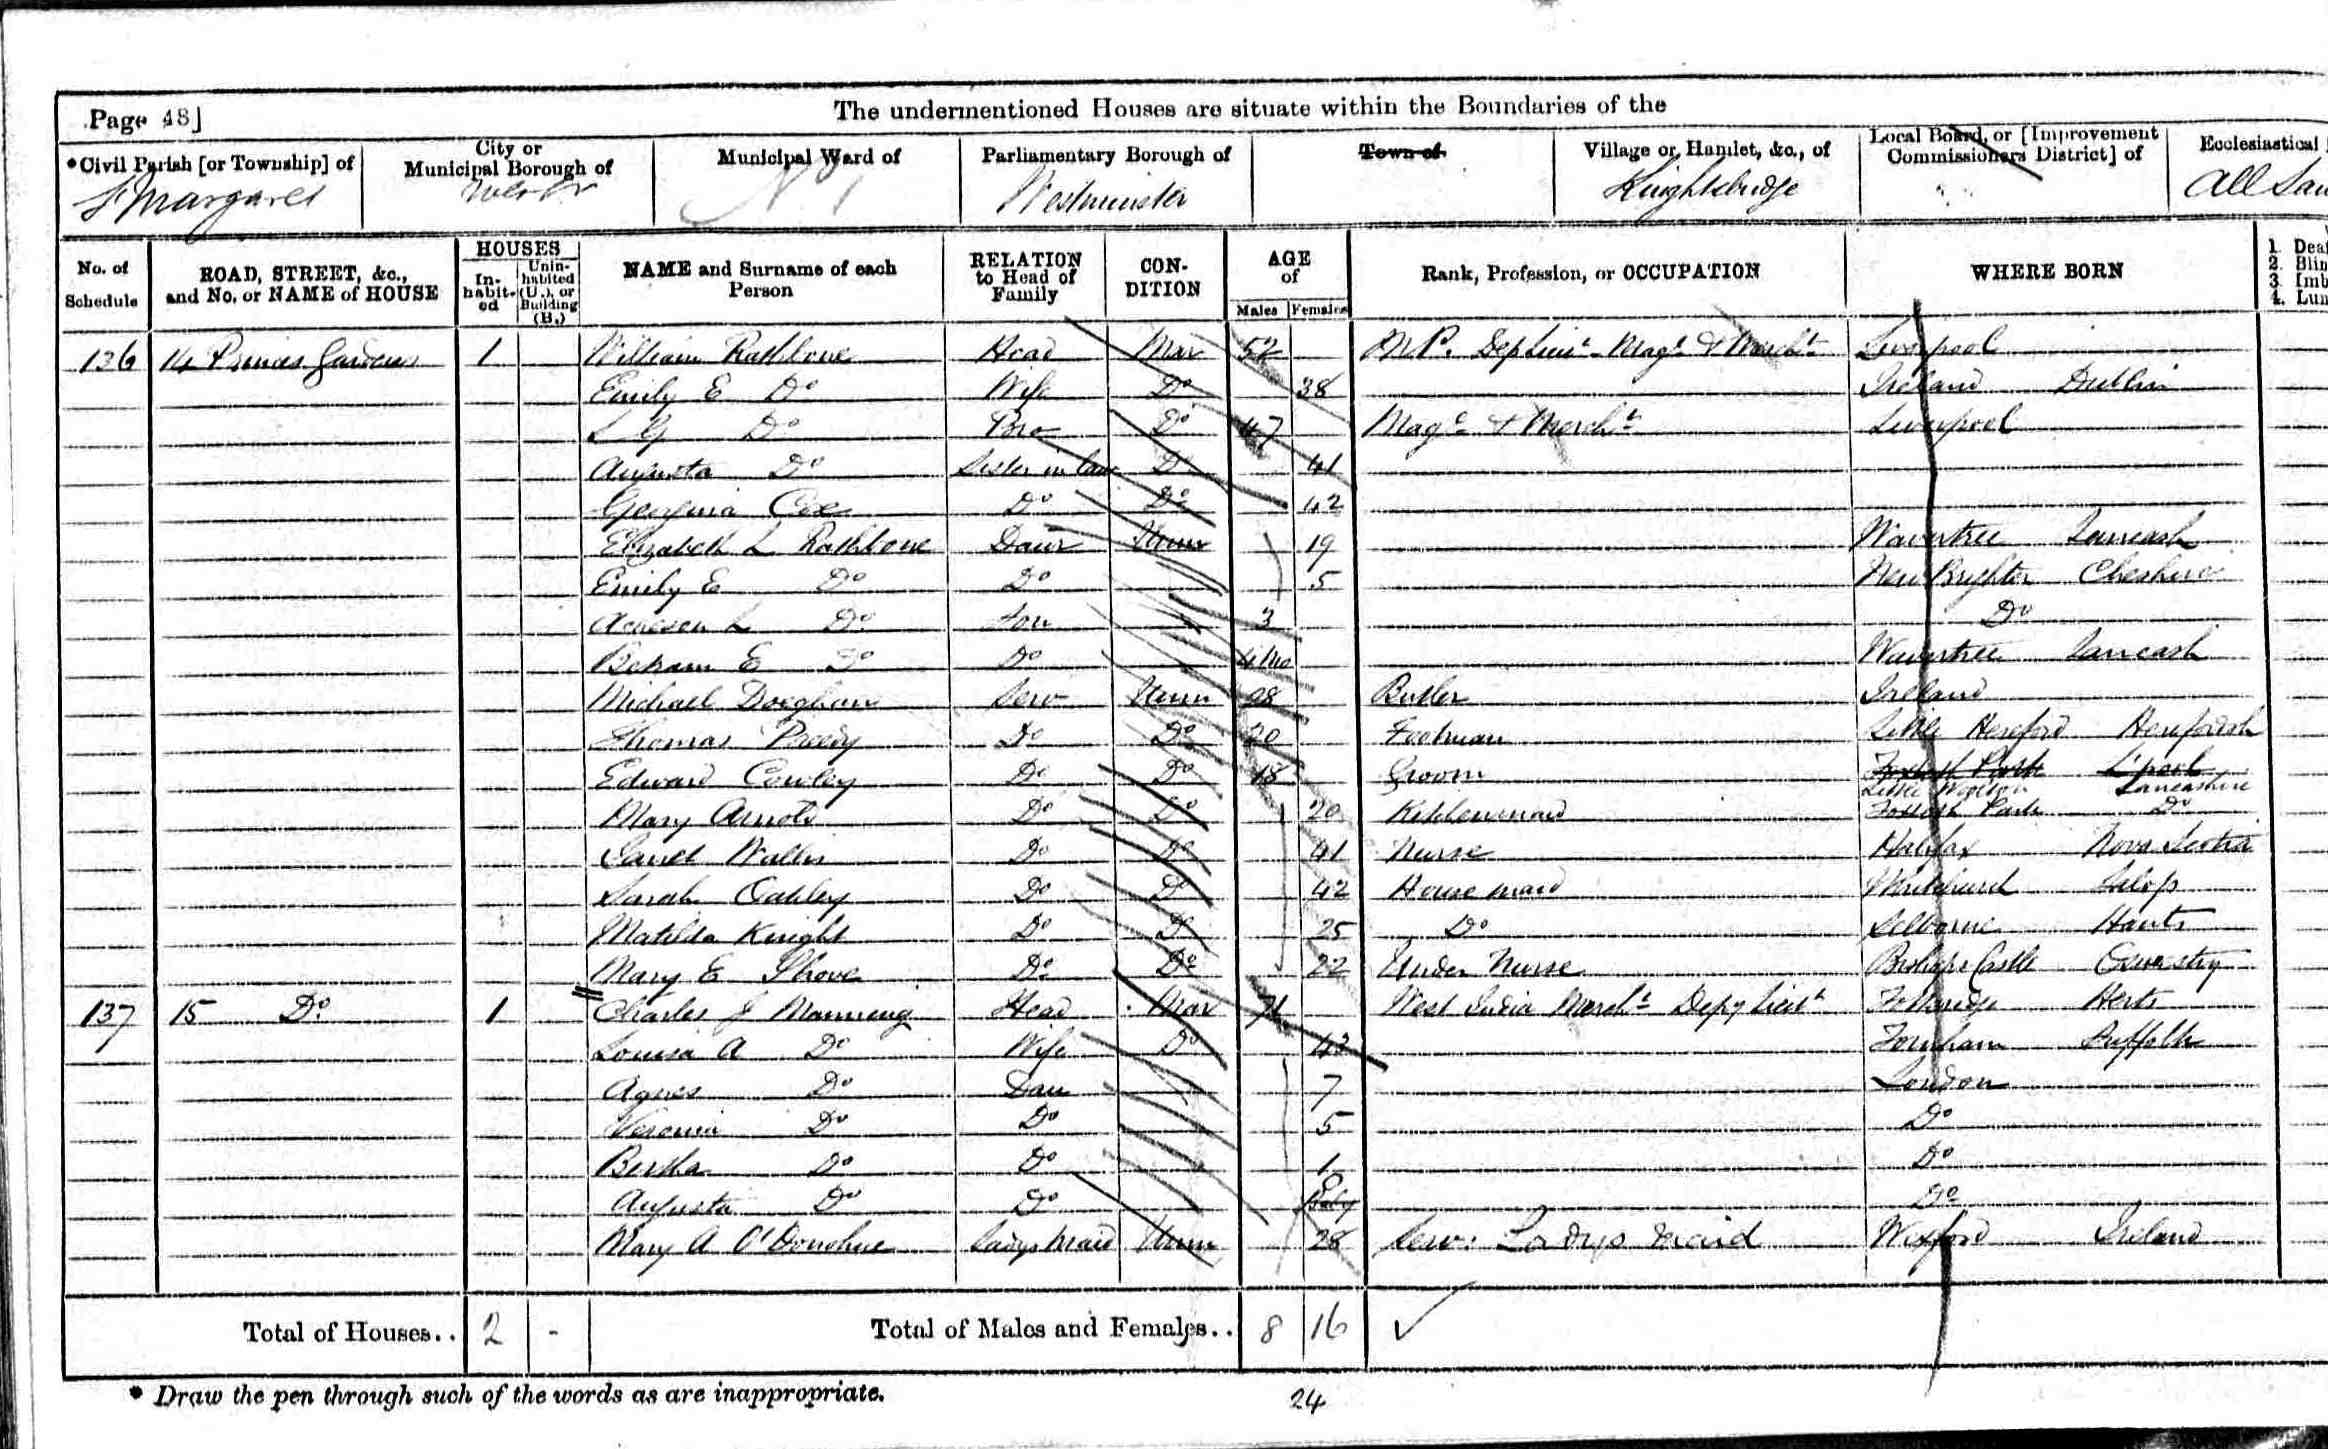 Page 48]
The undermentioned Houses are situate within the Boundaries of the
*Civil Parish [or Township] of
City or Municipal Borough of
Municipal Ward of
Parliamentary Borough of
Town of
Village or Hamlet, &c., of
Local Board, or [Improvement Commissioners District] of
Ecclesiastical
St Margaret
Westr
Westminster
Knightsbridge
All
No. of Schedule
ROAD, STREET, &c., and No. or NAME of HOUSE
HOUSES
In-habit-ed
Unin-habited (U.), or Building (B.)
NAME and Surname of each Person
RELATION to Head of Family
CON-DITION
AGE of
Males
Females
Rank, Profession, or OCCUPATION
WHERE BORN
1. Deaf
2. Blin
3. Imb
4. Lun
136 14 Princes Gardens 1 William Rathbone Head Mar 52 M.P. Dep Lieut Magt & Mercht Liverpool
Emily E Do Wife Do 38 Ireland Dublin
S G Do Bro Do 47 Magt & Mercht Liverpool
Augusta Do Sister in law Do 41
Georgina Cox Do Do 42
Elizabeth L Rathbone Daur Unm 19 Wavertree Lancash
Emily E Do Do 5 New Brighton Cheshire
L Do Son 3 Do
Bertram E Do Do 4 Mo Wavertree Lancash
Michael Serv Unm 28 Butler Ireland
Thomas Preedy Do Do 20 Footman Little Hereford Herefordsh
Edward Cowley Do Do 18 Groom Toxteth Park L'pool
Little Woolton Lancashire
Mary Arnold Do Do 20 Kitchenmaid Toxteth Park Do
Janet Wallis Do Do 41 Nurse Halifax Nova Scotia
Sarah Oakley Do Do 42 House maid Whitchurch Salop
Matilda Knight Do Do 25 Do Selborne Hants
Mary E Do Do 22 Under Nurse Bishops Castle Oswestry
137 15 Do 1 Charles J Manning Head Mar 71 West India Mercht Depy Lieut Totteridge Herts
Louisa A Do Wife Do 43 Fornham Suffolk
Agnes Do Dau 7 London
Do Do 5 Do
Bertha Do Do 1 Do
Augusta Do Do Baby Do
Mary A O'Donohue Ladys Maid Unm 28 Serv: Ladys Maid Wexford Ireland
Total of Houses.. 2 - Total of Males and Females.. 8 16
* Draw the pen through such of the words as are inappropriate.
24